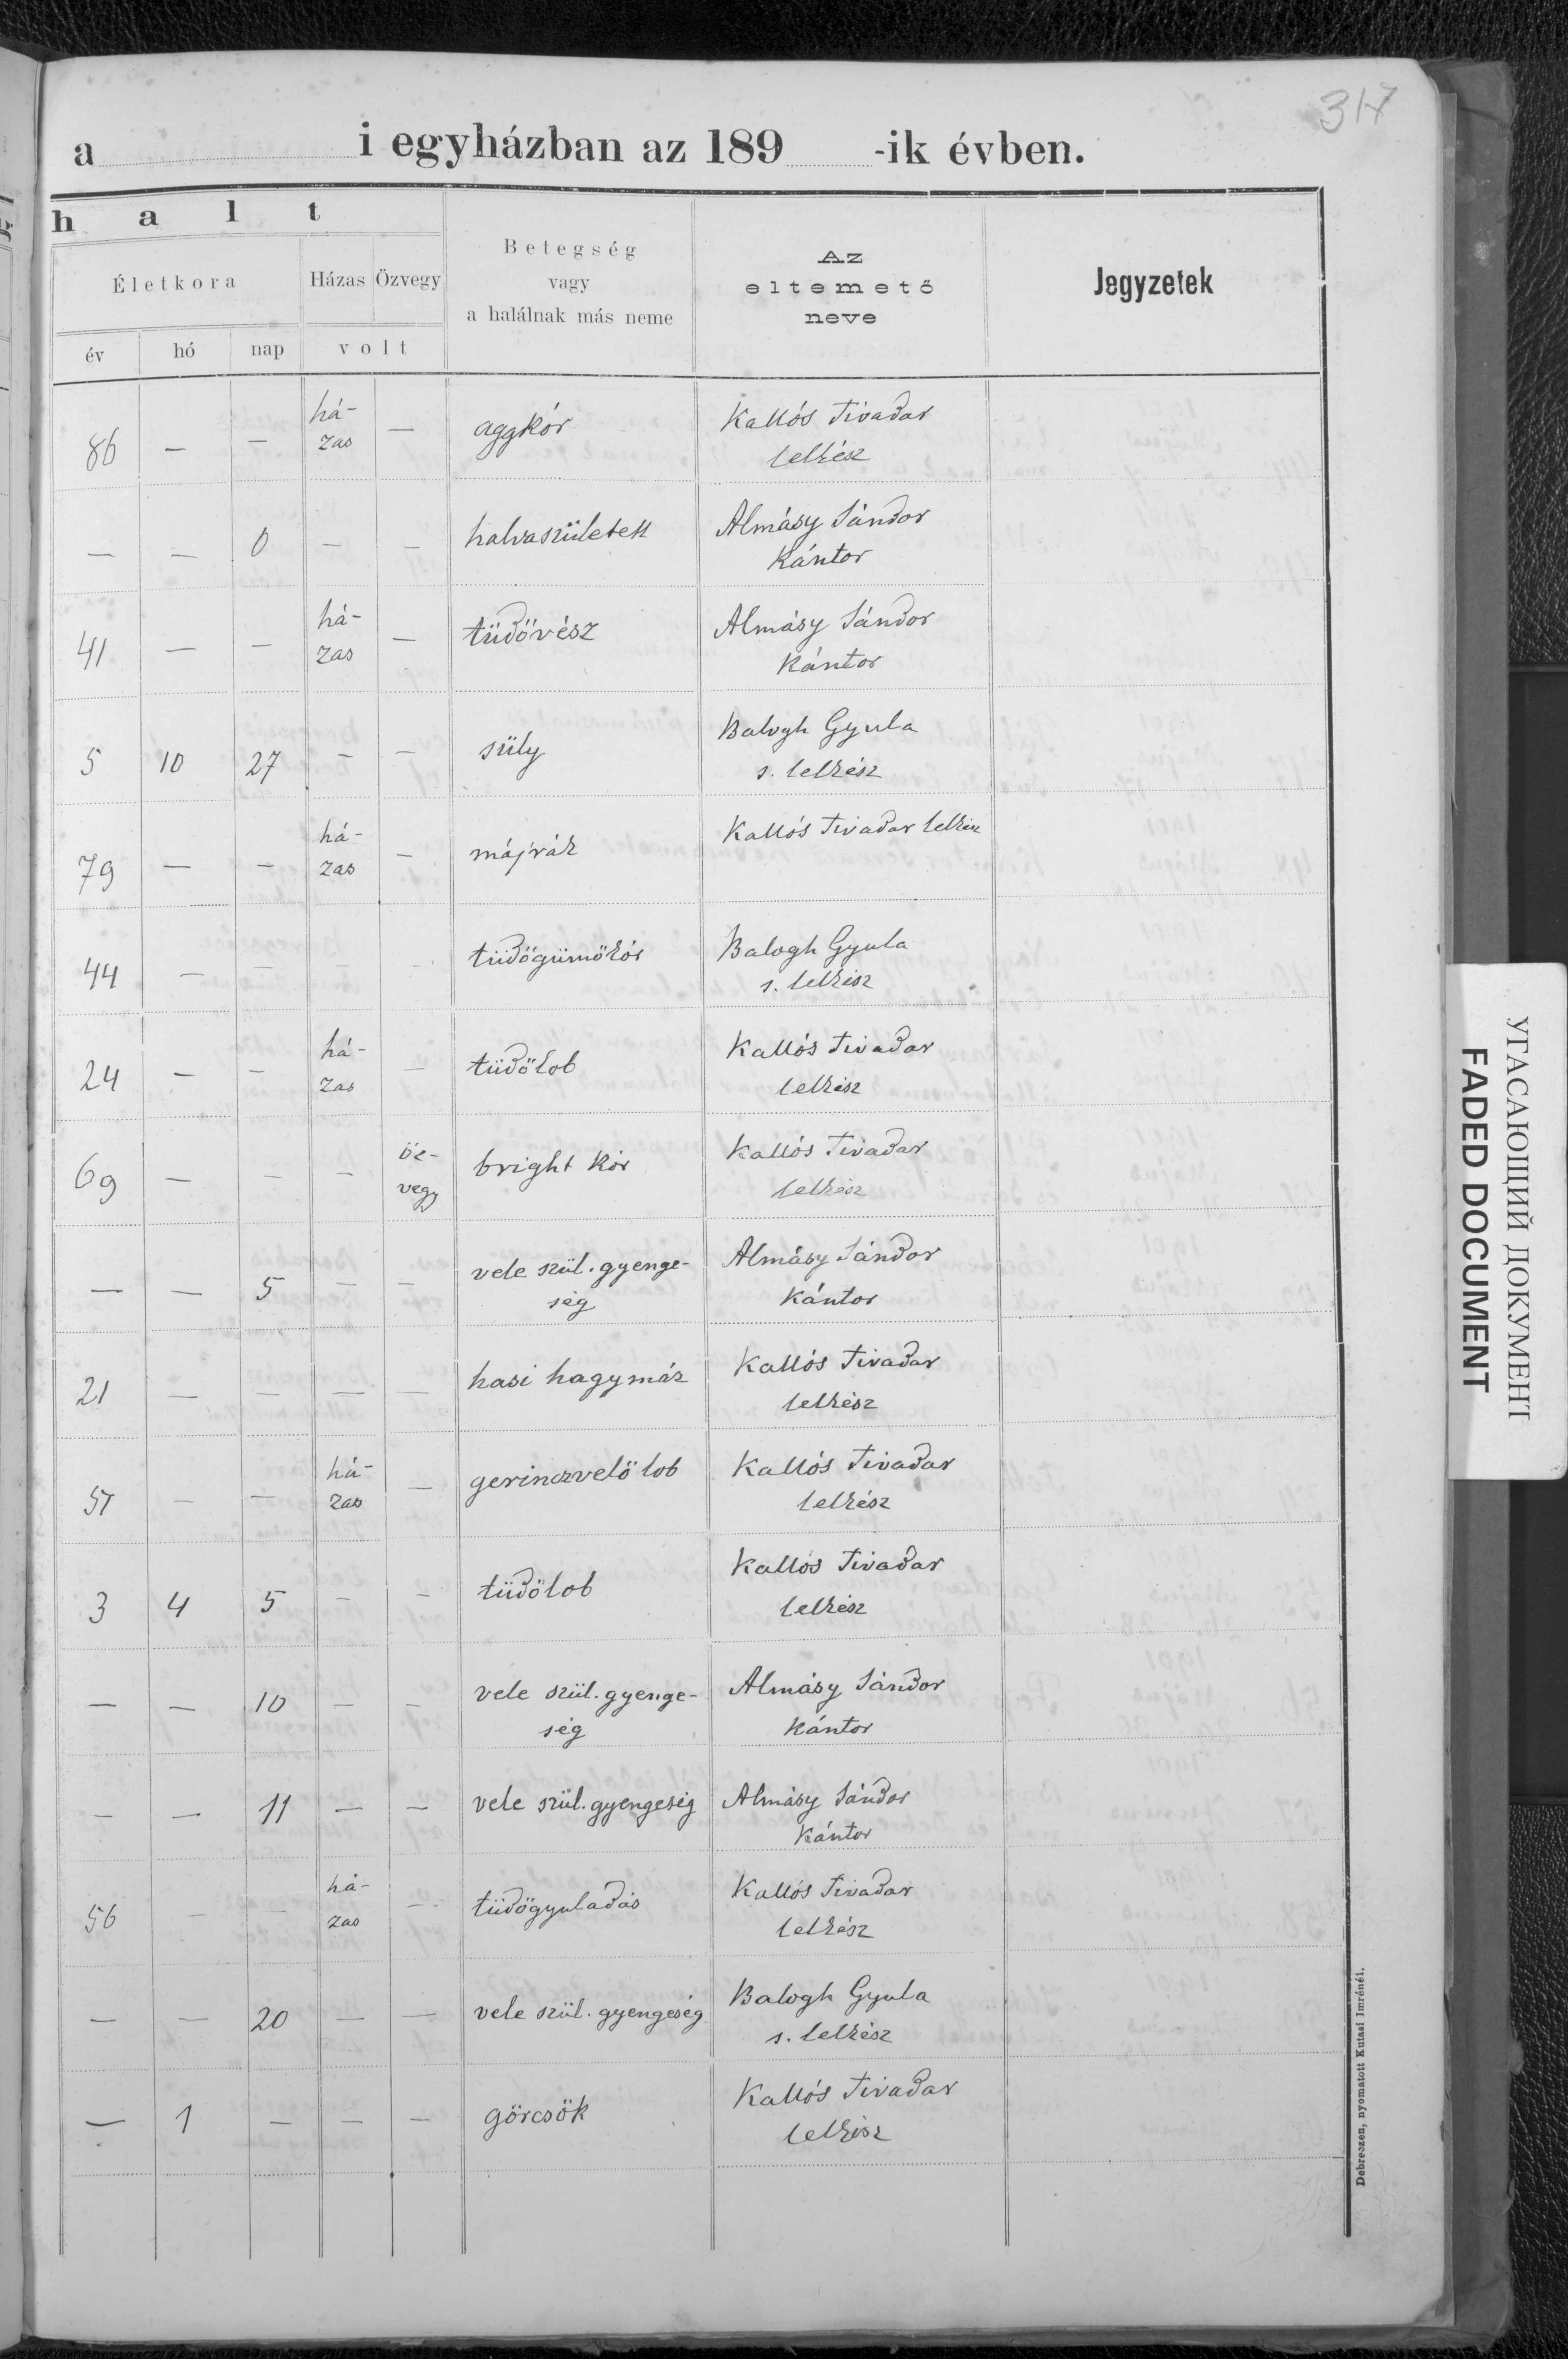 317
a i egyházban az 189 -ik évben.
h a l t
Életkora
Házas Özvegy
Betegség
vagy
a halálnak más neme
Az
eltemető
neve
Jegyzetek
év hó nap volt
86 — — há-
zas — aggkór Kallós Tivadar
lelkész
— — 0 — — halvaszületett Almásy Sándor
kántor
41 — — há-
zas — tüdővész Almásy Sándor
kántor
5 10 27 — — süly Balogh Gyula
s. lelkész
79 — — há-
zas — májrák Kallós Tivadar lelkész
44 — — — — tüdőgümőkór Balogh Gyula
s. lelkész
24 — — há-
zas — tüdőlob Kallós Tivadar
lelkész
69 — — — öz-
vegy bright kór Kallós Tivadar
lelkész
— — 5 — — vele szül. gyenge-
ség Almásy Sándor
kántor
21 — — — — hasi hagymáz Kallós Tivadar
lelkész
— — há-
zas — gerinczvelő lob Kallós Tivadar
lelkész
3 4 5 — — tüdőlob Kallós Tivadar
lelkész
— — 10 — — vele szül. gyenge-
ség Almásy Sándor
kántor
— — 11 — — vele szül. gyengeség Almásy Sándor
kántor
56 — — há-
zas — tüdőgyuladás Kallós Tivadar
lelkész
— — 20 — — vele szül. gyengeség Balogh Gyula
s. lelkész
— 1 — — — görcsök Kallós Tivadar
lelkész
Debreczen, nyomatott Kutasi Imrénél.
УГАСАЮЩИЙ ДОКУМЕНТ
FADED DOCUMENT